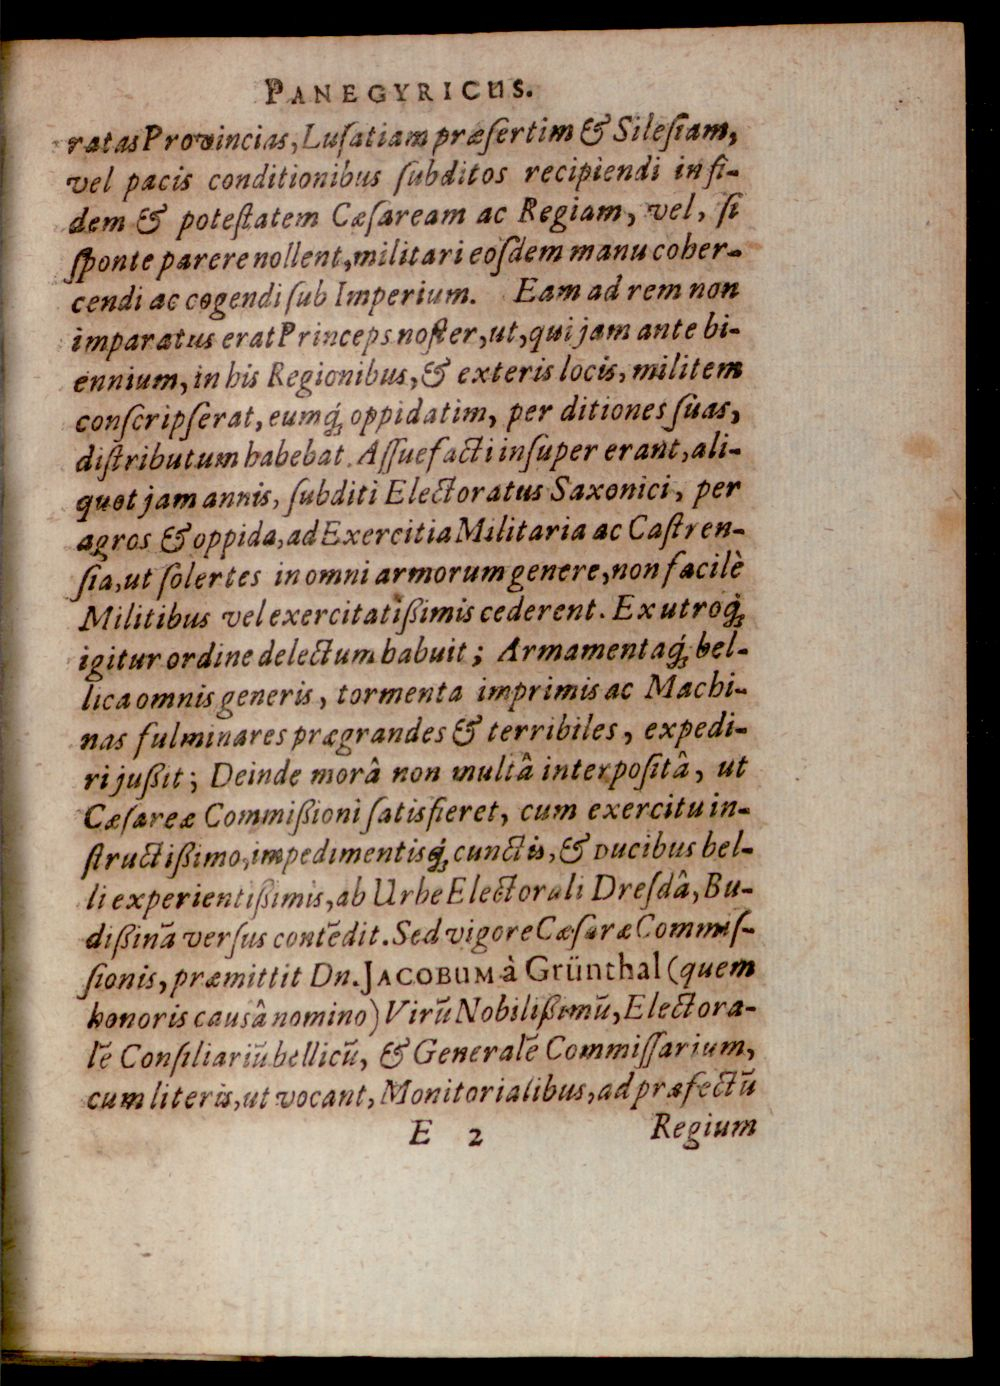 PANEGYRICUS.
ratas Provincias, Luſatiam præſertim & Sileſiam,
vel pacis conditionibus ſubditos recipiendi in fi-
dem & poteſtatem Cæſaream ac Regiam, vel, ſi
ſponte parere nollent, militari eoſdem manu coher-
cendi ac cogendi ſub Imperium. Eam ad rem non
imparatus erat Princeps noſter, ut, qui jam ante bi-
ennium, in his Regionibus, & exteris locis, militem
conſcripſerat, eumq́; oppidatim, per ditiones ſuas,
diſtributum habebat. Aſſuefacti inſuper erant, ali-
quot jam annis, ſubditi Electoratus Saxonici, per
agros & oppida, ad Exercitia Militaria ac Caſtren-
ſia, ut ſolertes in omni armorum genere, non facilè
Militibus vel exercitatißimis cederent. Ex utroq́;
igitur ordine delectum habuit; Armamentaq́; bel-
lica omnis generis, tormenta imprimis ac Machi-
nas fulminares prægrandes & terribiles, expedi-
ri jußit; Deinde morâ non multâ interpoſitâ, ut
Cæſareæ Commißioni ſatisfieret, cum exercitu in-
ſtructißimo, impedimentisq́; cunctis, & Ducibus bel-
li experientißimis, ab Urbe Electorali Dreſdâ, Bu-
dißinā verſus contēdit. Sed vigore Cæſaræ Commiſ-
ſionis, præmittit Dn. JACOBUM à Grünthal (quem
honoris causâ nomino) Virū Nobilißimū, Electora-
lē Conſiliariū bellicū, & Generalē Commiſſarium,
cum literis, ut vocant, Monitorialibus, ad præfectū
E 2 Regium